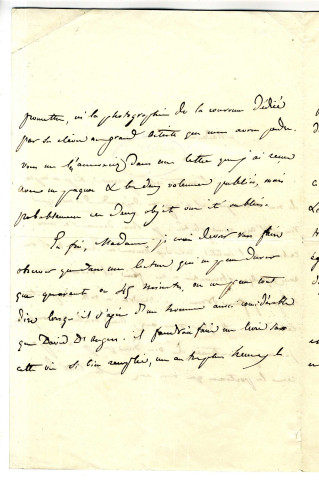 promettre, ni la photographie de la couronne dédiée
par ses élèves au grand artiste que nous avons perdu.
vous me l'annonciez dans une lettre que j'ai reçue
avec un paquet de volumes publiés, mais
probablement ces deux objets ont été oubliés.
Enfin, Madame, je crois devoir vous faire
observer que dans une lecture qui ne peut durer
que quarante ou 45 minutes, on ne peut tout
dire lorsqu'il s'agit d'un homme aussi considérable
que David d'Angers. il faudrait faire un livre sur
cette vie si bien remplie,